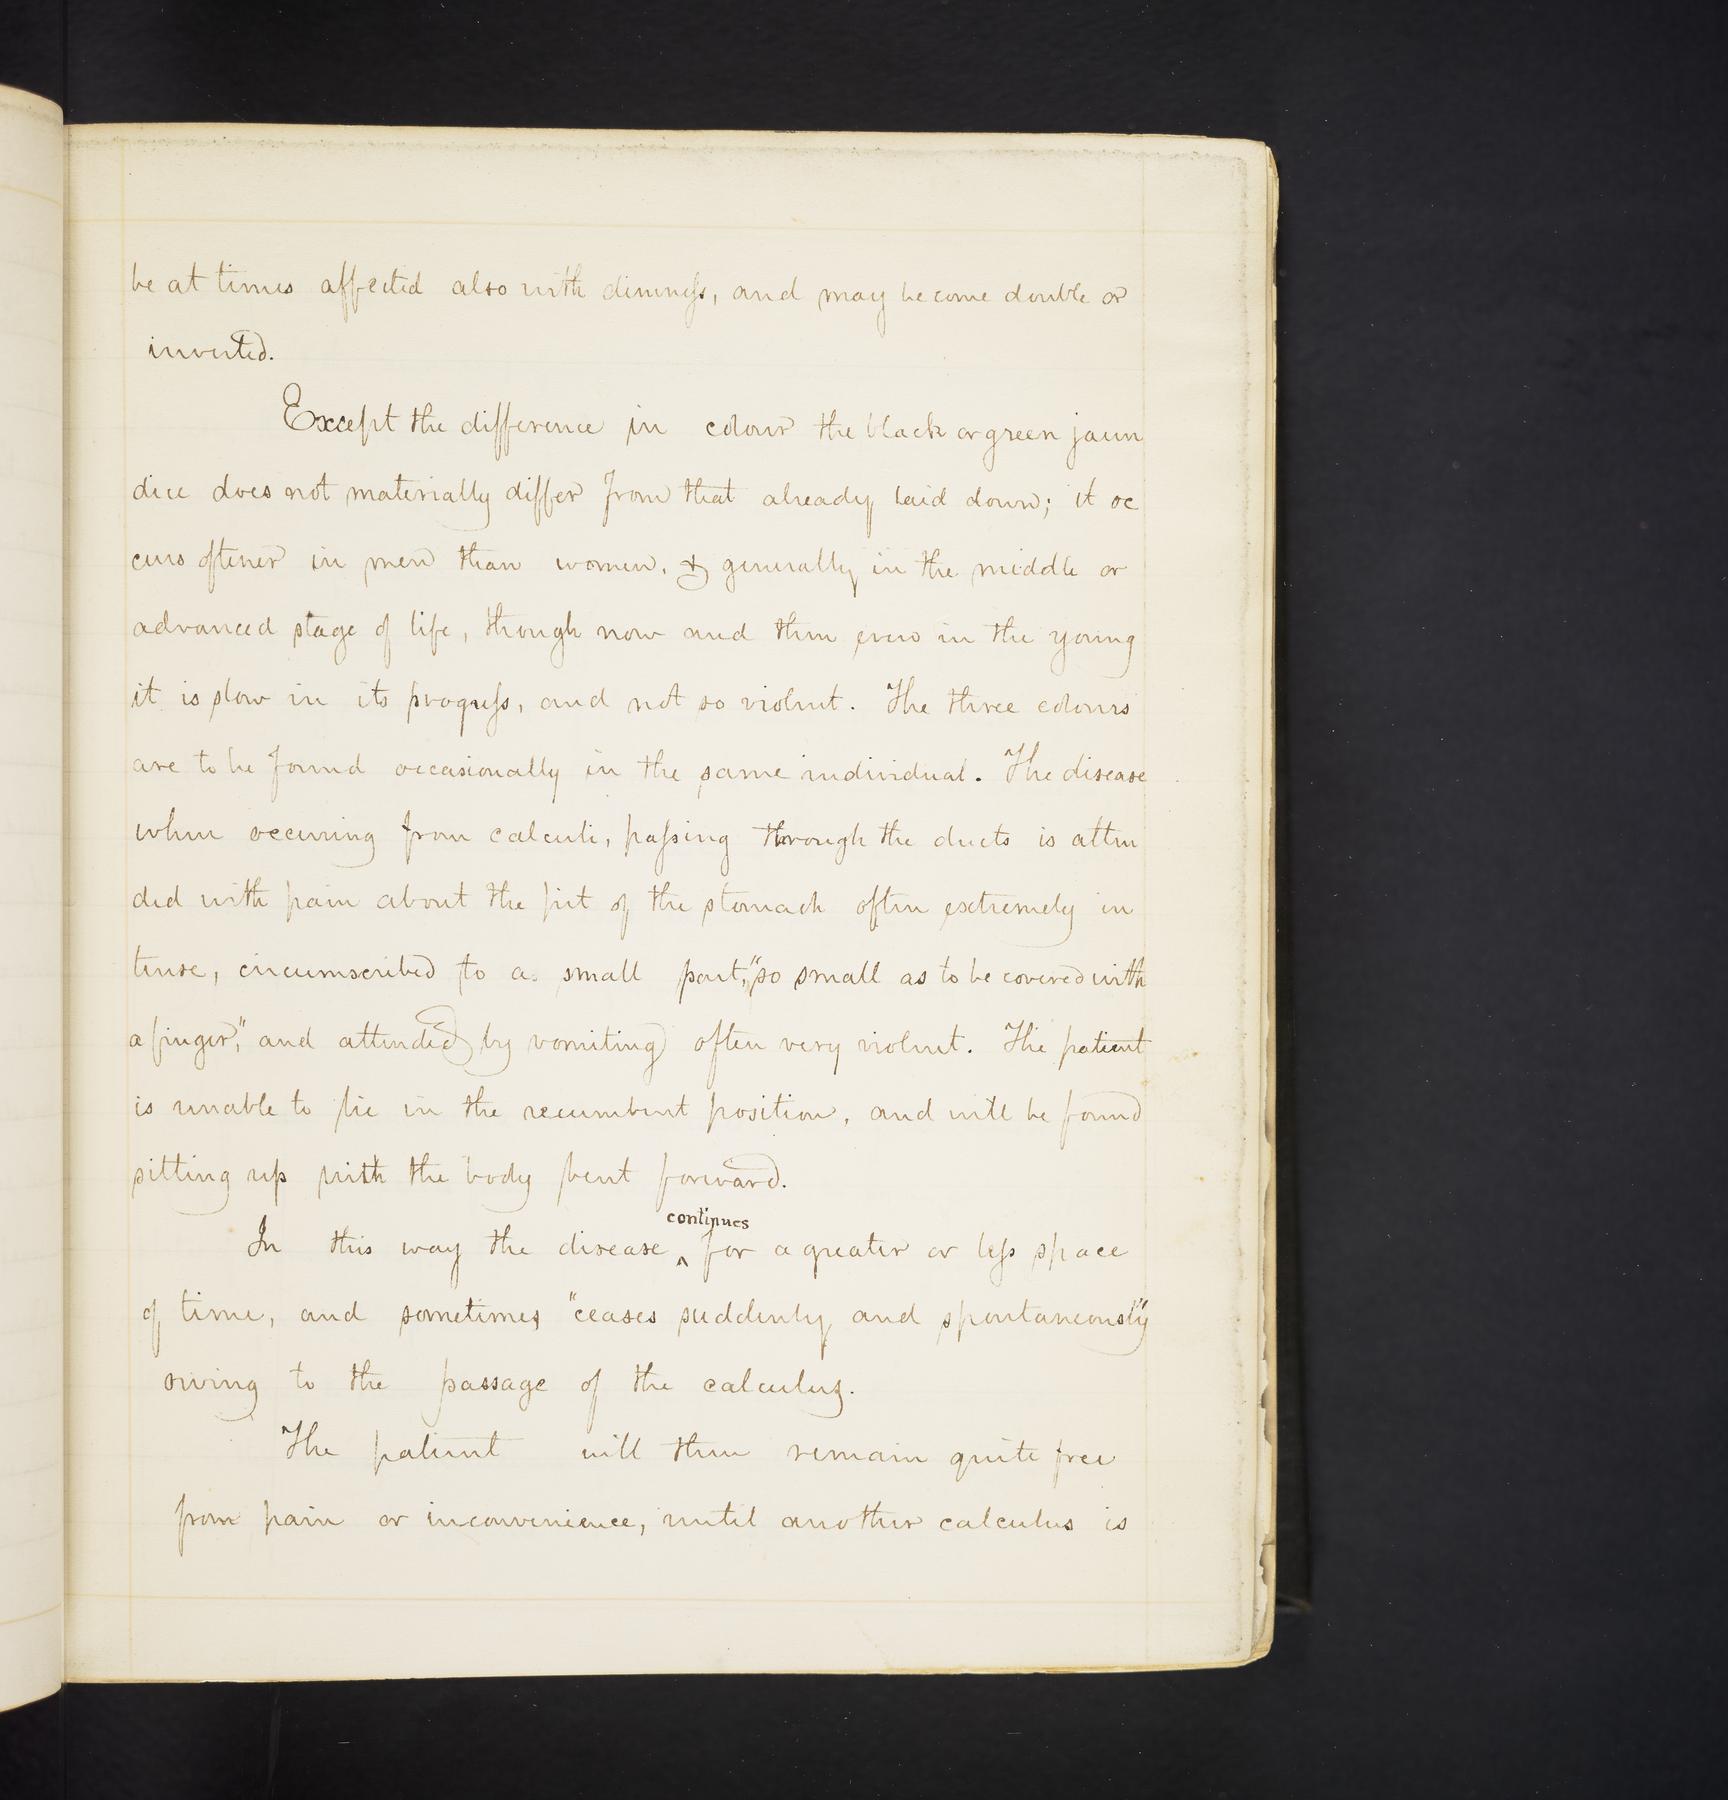 be at times affected also with dimness, and may become double or
inverted.
Except the difference in colour the black or green jaun
dice does not materially differ from that already laid down; it oc
curs oftener in men than women, & generally in the middle or
advanced stage of life, though now and then even in the young
it is slow in its progress, and not so violent. The three colours
are to be found occasionally in the same individual. The disease
when occuring from calculi, passing through the ducts is atten
ded with pain about the pit of the stomach often extremely in
tense, circumscribed to a small part, "so small as to be covered with
a finger," and attended by vomiting often very violent. The patient
is unable to lie in the recumbent position, and will be found
sitting up with the body bent forward.
continues
In this way the disease ^ for a greater or less space
of time, and sometimes "ceases suddenly and spontaneously"
owing to the passage of the calculus.
The patient will then remain quite free
from pain or inconvenience, until another calculus is